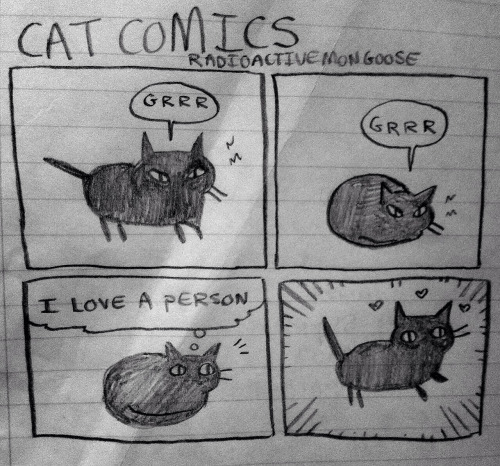 CAT COMICS
RADIOACTIVEMONGOOSE
GRRR
GRRR
I LOVE A PERSON